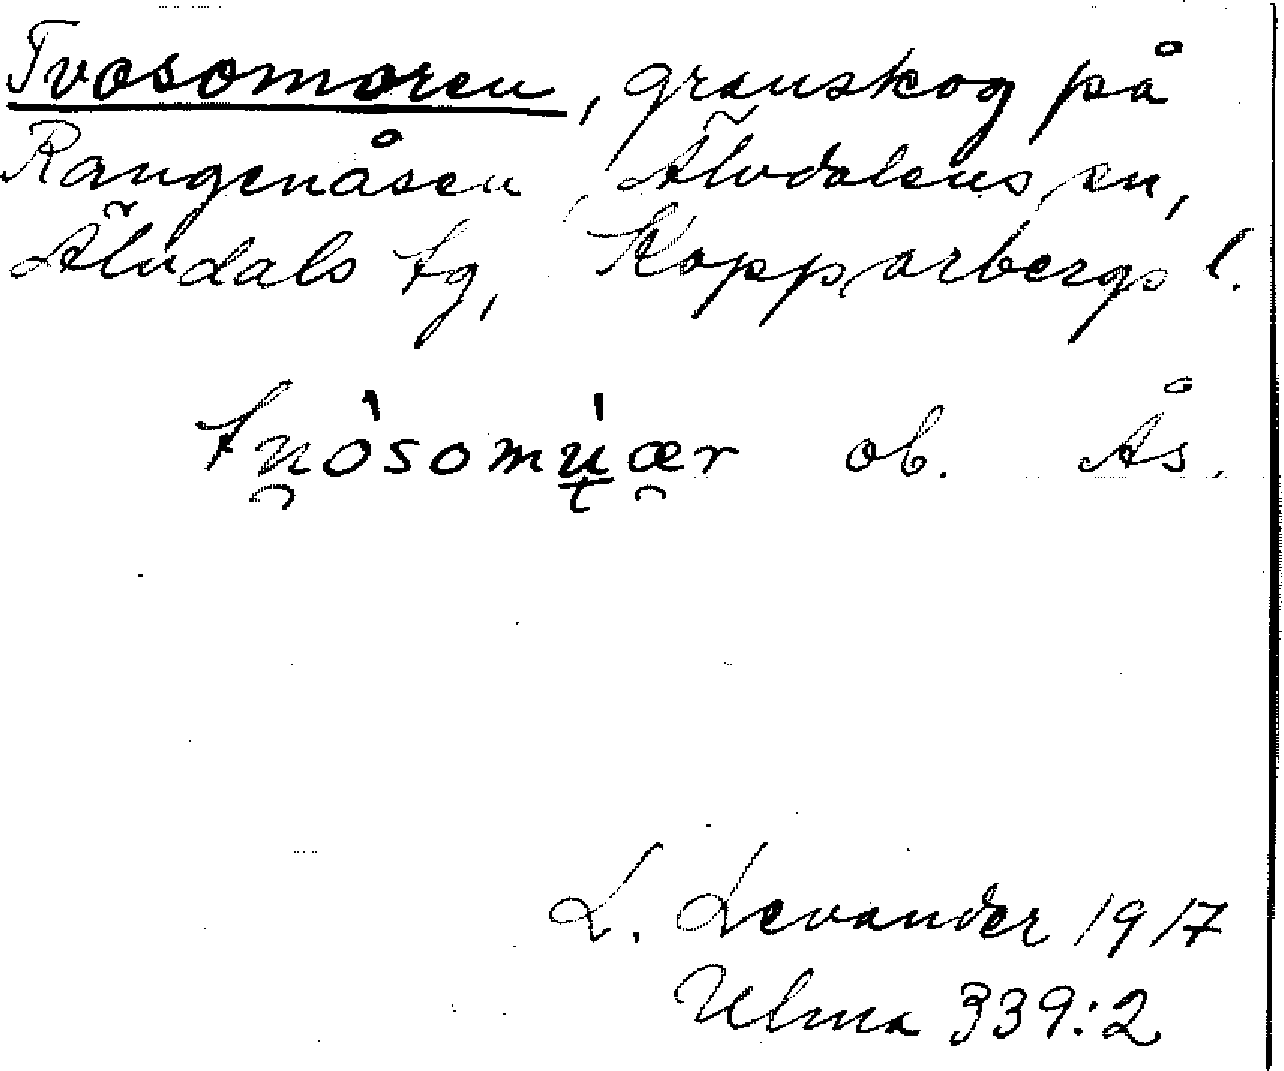 Tvosomoren, granskog på
Rangenåsen, Älvdalens sn,
Älvdals tg, Kopparbergs l.
ob. Ås.
L. Levander 1917
Ulma 339:2